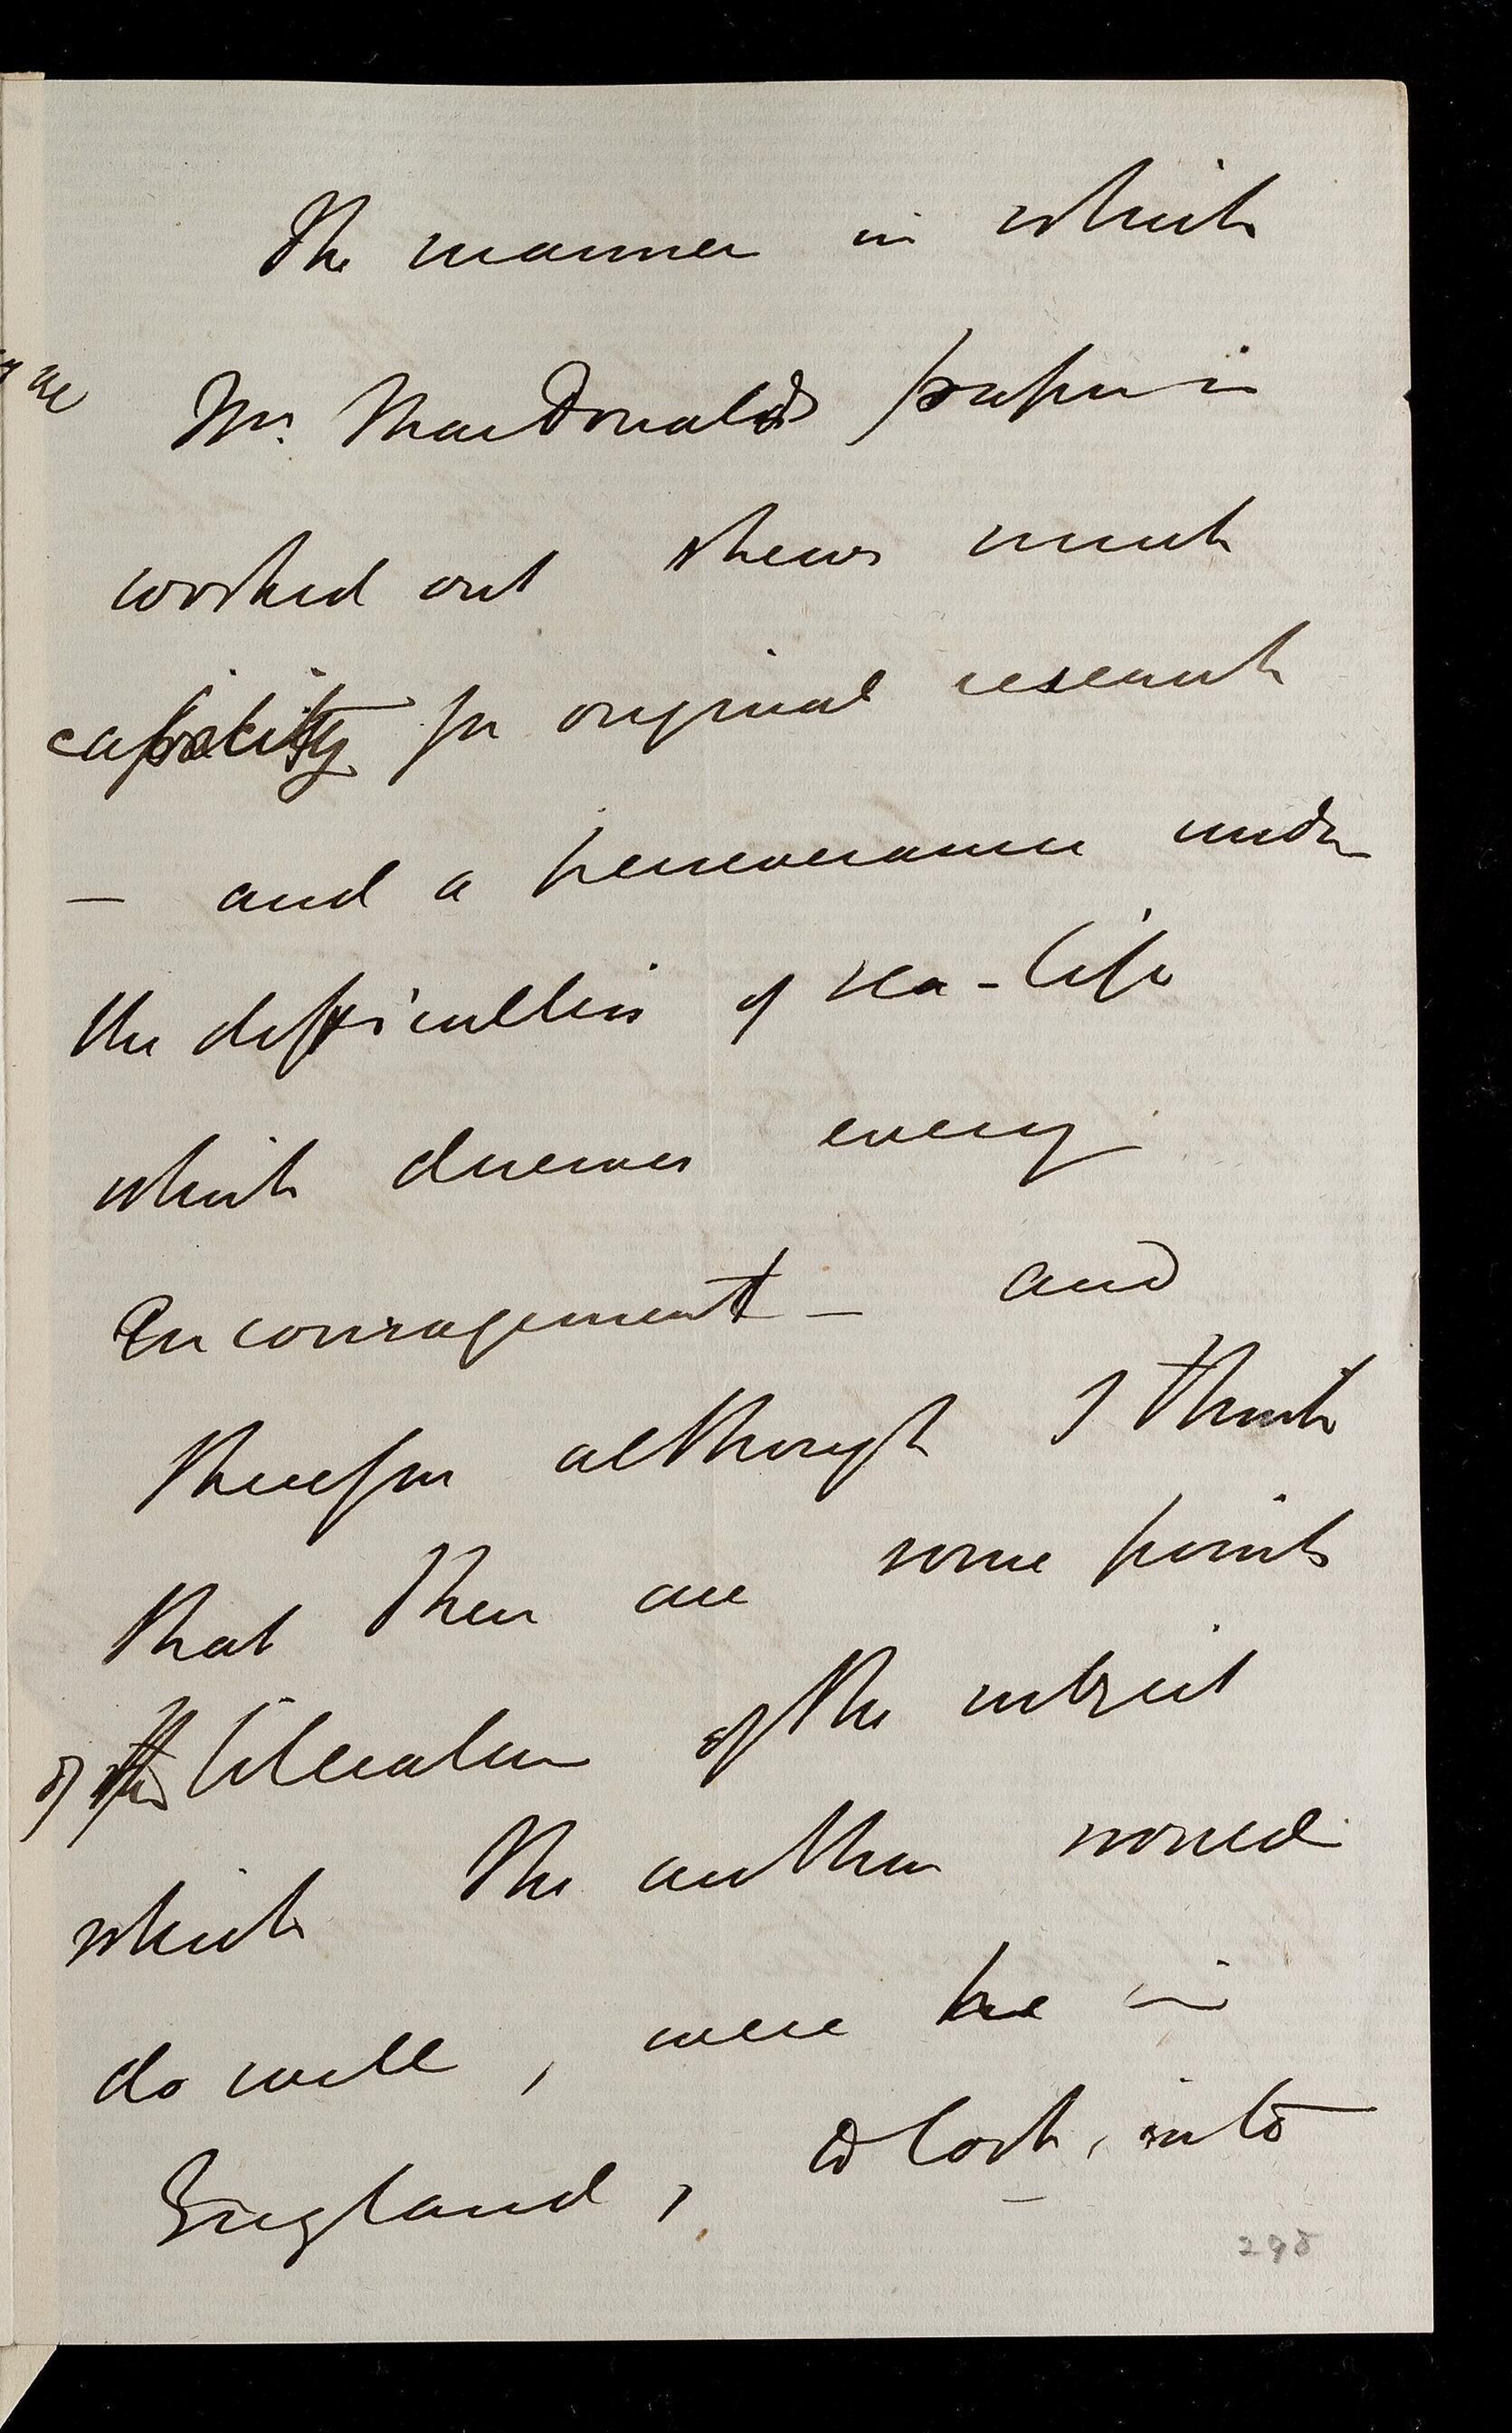 The manner in which
Mr. MacDonald's paper is
worked out shews much
capacity for original research
— and a perseverance under
the difficulties of sea-life
which deserves every
encouragement — and
therefore although I think
that there are some points
of the literature of the subject
which the author would
do well, were he in
England, to look, into
298